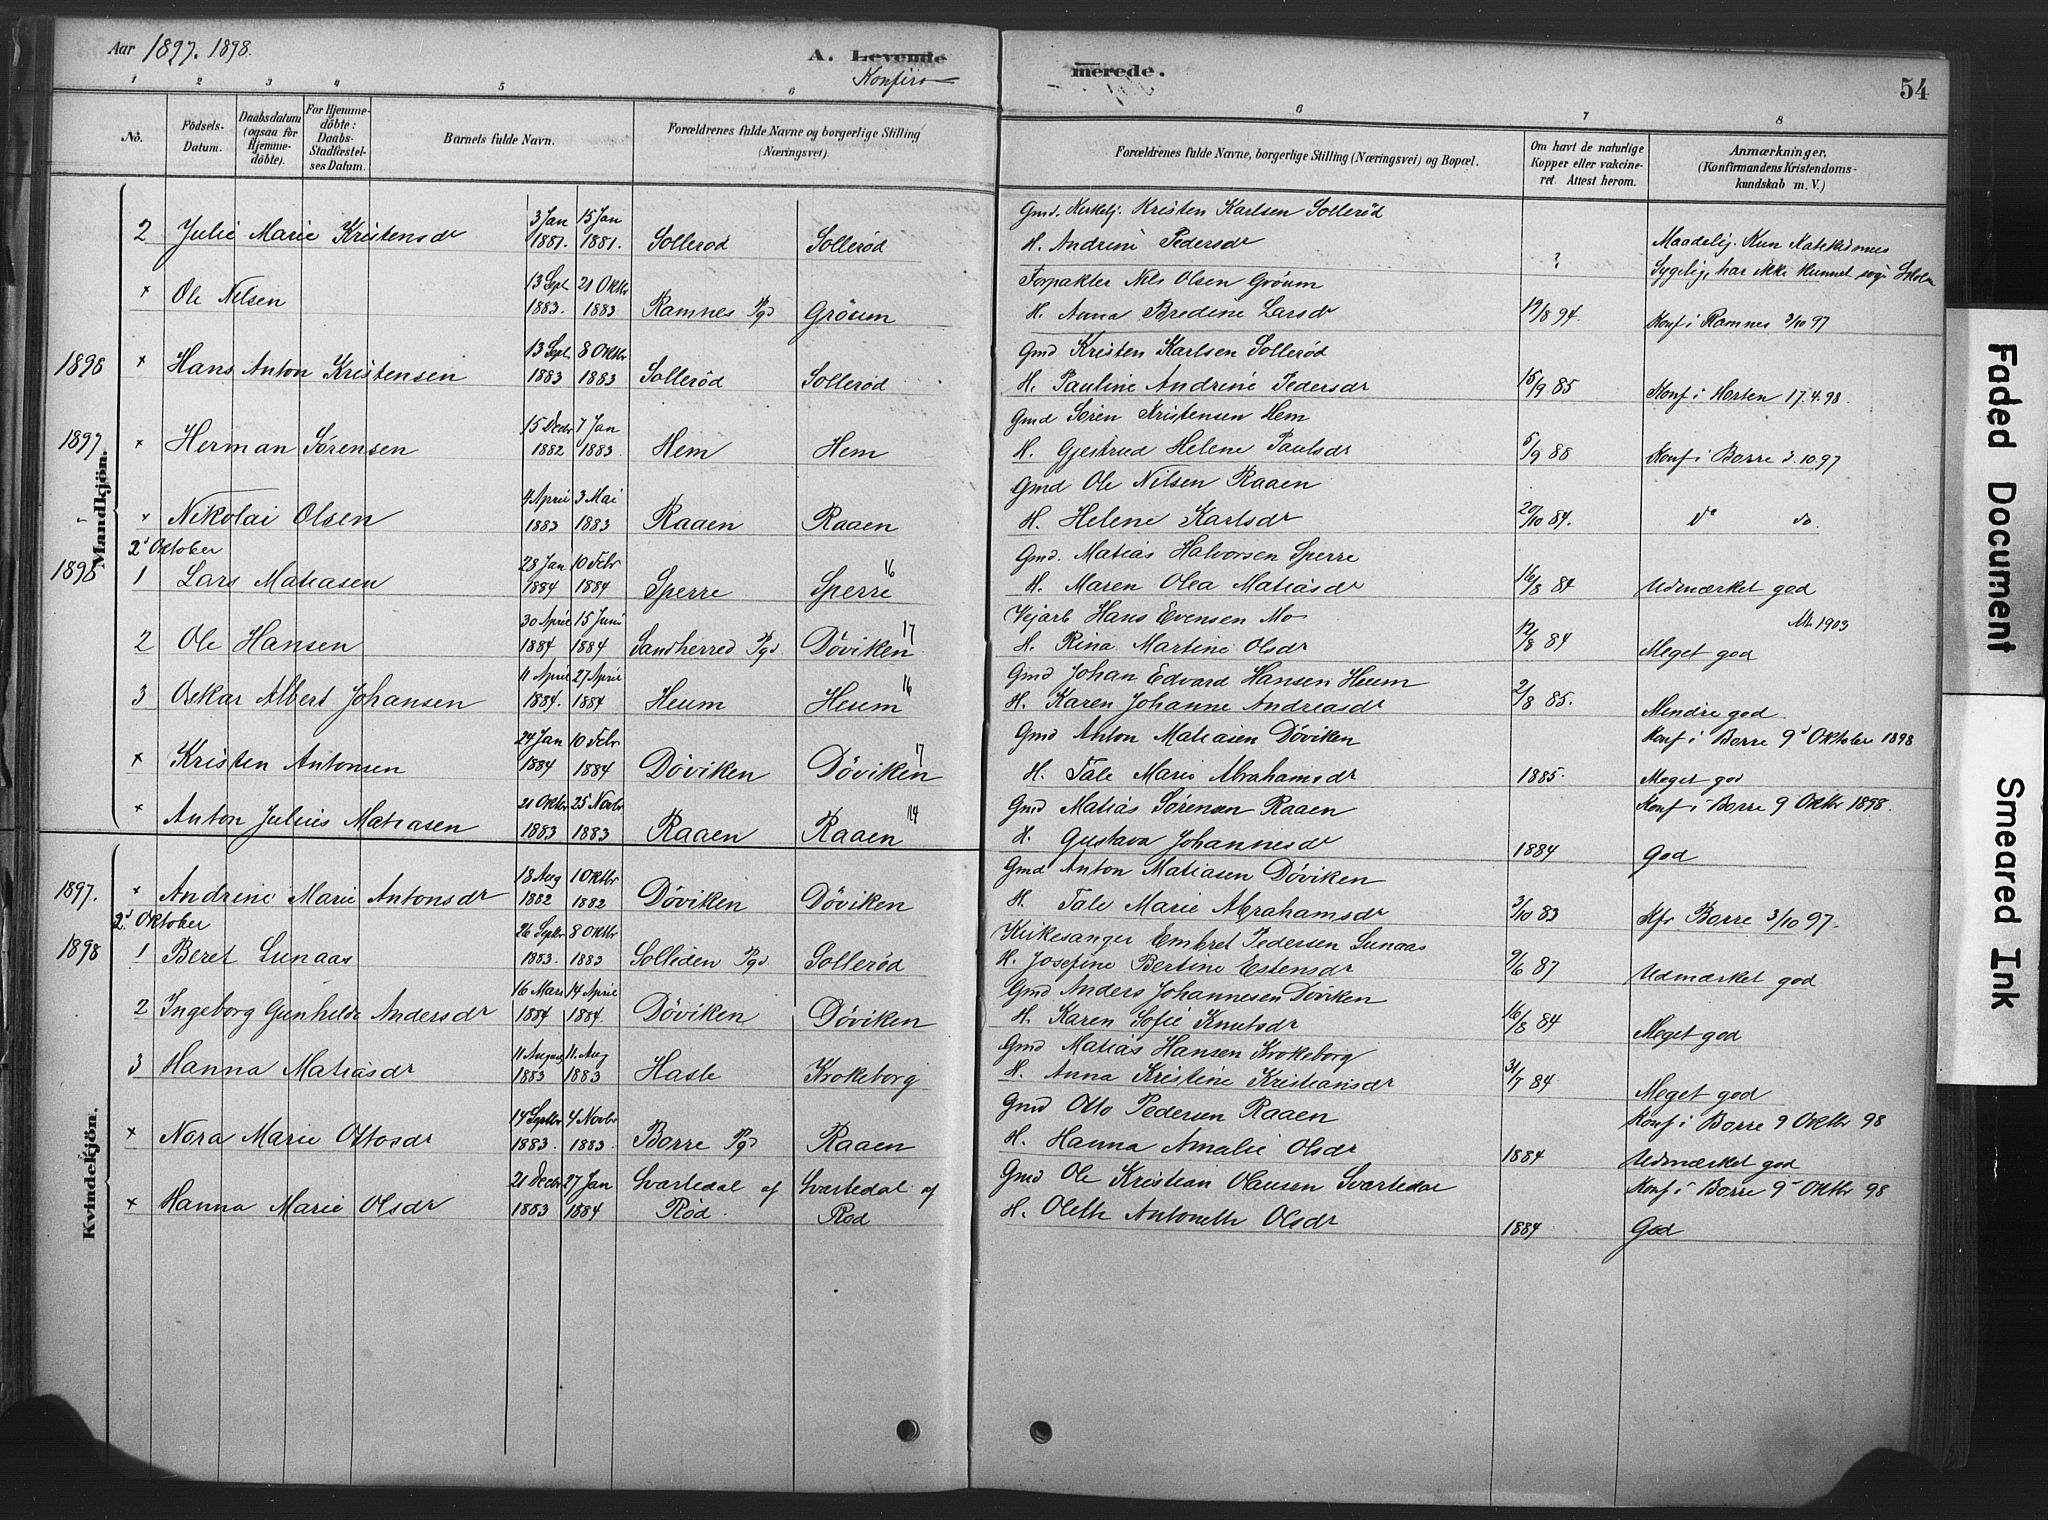 Aar 1897. 1898.
A. Levende
Konfir
merede.
54
1 2 3 4 5 6
6 7 8
No. Födsels-Datum. Daabsdatum (ogsaa for Hjemme-döbte). For Hjemme-döbte: Daabs-Stadfæstel-ses Datum. Barnets fulde Navn. Forældrenes fulde Navne og borgerlige Stilling (Næringsvei).
Forældrenes fulde Navne, borgerlige Stilling (Næringsvei) og Bopæl. Om havt de naturlige Kopper eller vakcine-ret. Attest herom. Anmærkninger, (Konfirmandens Kristendoms-kundskab m. V.)
Mandkjön.
3 Jan 15 Jan Gmd. Kirketj. Kristen Karlsen Sollerød
2 Julie Marie Kristensdr 1881. 1881. Sollerød Sollerød H. Andrine Pedersdr ? Maadelig. Kun Katekismus
Sygelig, har ikke kunnet søge Skolen
13 Sept 21 Oktbr Forpakter Nils Olsen Grôum
x Ole Nilsen 1883. 1883 Ramnes Pgd Grôum H. Anna Bredine Larsdr 19/8 94. Konf i Ramnes 3/10 97
13 Sept 8 Oktbr Gmd Kristen Karlsen Sollerød
1898 x Hans Anton Kristensen 1883 1883 Sollerød Sollerød H. Pauline Andrine Pedersdr 15/9 85 Konf i Horten 17.4.98.
15 Decbr 7 Jan Gmd Søren Kristensen Hem
1897 x Herman Sørensen 1882 1883 Hem Hem H. Gjertrud Helene Paulsdr 5/9 88 Konf i Borre 3.10.97
4 April 3 Mai Gmd Ole Nilsen Raaen
x Nikolai Olsen 1883 1883 Raaen Raaen H. Helene Karlsdr 20/10 84. do do.
2' Oktober 28 Jan 10 Febr Gmd. Matias Halvorsen Sperre
1898 1 Lars Matiasen 1884 1884 Sperre Sperre 16 H. Maren Olea Matiasdr 16/8 84 Udmærket god
30 April 15 Juni Vejarb Hans Evensen Mo Att. 1903
2 Ole Hansen 1884 1884 Sandherred Pgd Døviken 17 H. Rina Martine Olsdr 12/8 84 Meget god
11 April 27 April Gmd Johan Edvard Hansen Heum
3 Oskar Albert Johansen 1884. 1884 Heum Heum 16 H. Karen Johanne Andreasdr 2/8 85. Mindre god
24 Jan 10 Febr Gmd Anton Matiasen Døviken Konf i Borre 9' Oktober 1898
x Kristen Antonsen 1884 1884 Døviken Døviken 17 H. Tale Marie Abrahamsdr 1885. Meget god
21 Oktbr 25 Novbr Gmd Matias Sørensen Raaen Konf i Borre 9 Oktbr 1898.
x Anton Julius Matiasen 1883 1883 Raaen Raaen 14 H. Gustava Johannesdr 1884 God
Kvindekjön.
18 Aug 1 Oktbr Gmd Anton Matiasen Døviken
1897. x Andrine Marie Antonsdr 1882 1882 Døviken Døviken H. Tale Marie Abrahamsdr 3/10 83 Kfr Borre 3/10 97.
2' Oktober 26 Septbr 8 Oktbr Kirkesanger Embret Pedersen Lunaas
1898 1 Beret Lunaas 1883. 1883 Solliden Pgd Sollerød H. Josefine Bertine Estensdr 9/6 87 Udmærket god
16 Mars 14 April Gmd Anders Johannesen Døviken
2 Ingeborg Gunhilde Andersdr 1884 1884. Døviken Døviken H. Karen Sofie Knutsdr 16/8 84 Meget god
11 August 11 Aug Gmd Matias Hansen Krokeborg
3 Hanna Matiasdr 1883 1883 Hasle Krokeborg H. Anna Kristine Kristiansdr 31/7 84 Meget god
14 Septbr 4 Novbr Gmd Otto Pedersen Raaen Konf i Borre 9 Oktbr 98
x Nora Marie Ottosdr 1883. 1883. Borre Pgd Raaen H. Hanna Amalie Olsdr 1884 Udmærket god
21 Decbr 27 Jan Svartedal af Svartedal af Gmd Ole Kristian Olausen Svartedal Konf i Borre 9' Oktbr 98
x Hanna Marie Olsdr 1883 1884 Rød. Rød H. Oleth Antoneth Olsdr 1884 God
Faded Document
Smeared Ink